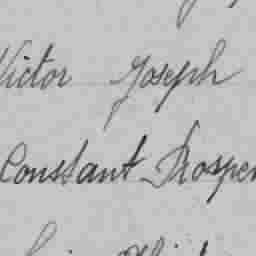 Victor Joseph
Constant Prosper